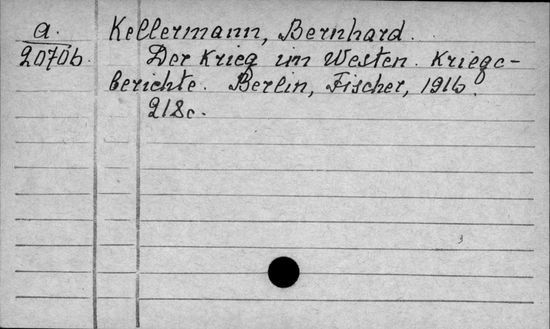 a. Kellermann, Bernhard.
20706. Der Krieg im Westen. Kriegs-
berichte. Berlin, Fischer, 1916.
218c.
3